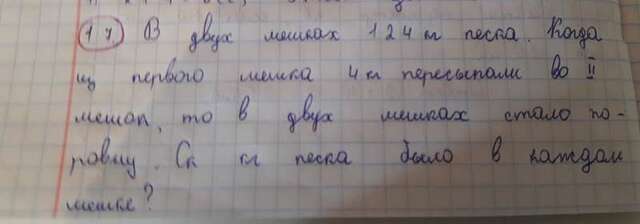 17) В двух мешках 124 кг песка. Когда
из первого мешка 4 кг пересыпали во II
мешок, то в двух мешках стало по-
ровну. Ск кг песка было в каждом
мешке?